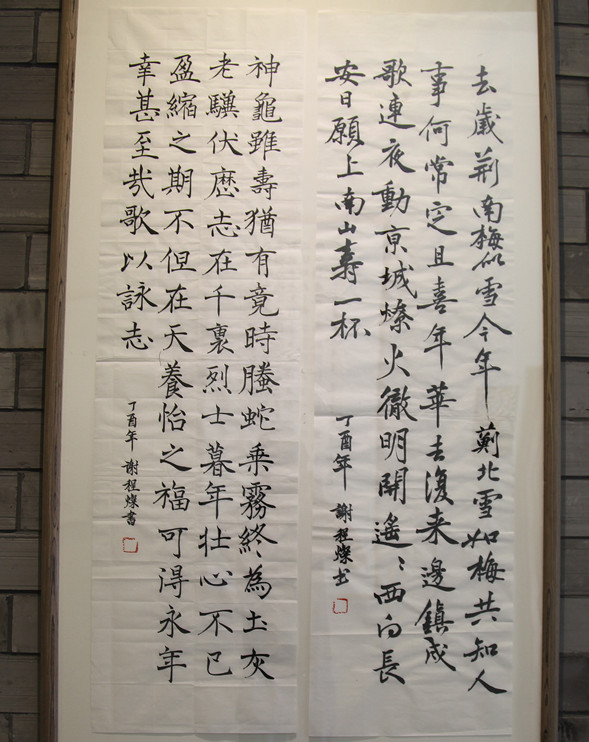 去歲荆南梅似雪今年薊北雪如梅共知人
事何常定且喜年華去復来邊鎮戍
歌連夜動亰城燎火徹明開遥〻西向長
安日願上南山壽一杯
丁酉年 謝程燦书
神龜雖壽猶有竟時螣蛇乗霧終為土灰
老驥伏厯志在千裏烈士暮年壮心不已
盈縮之期不但在天養怡之福可得永年
幸甚至哉歌以詠志
丁酉年 謝程燦書